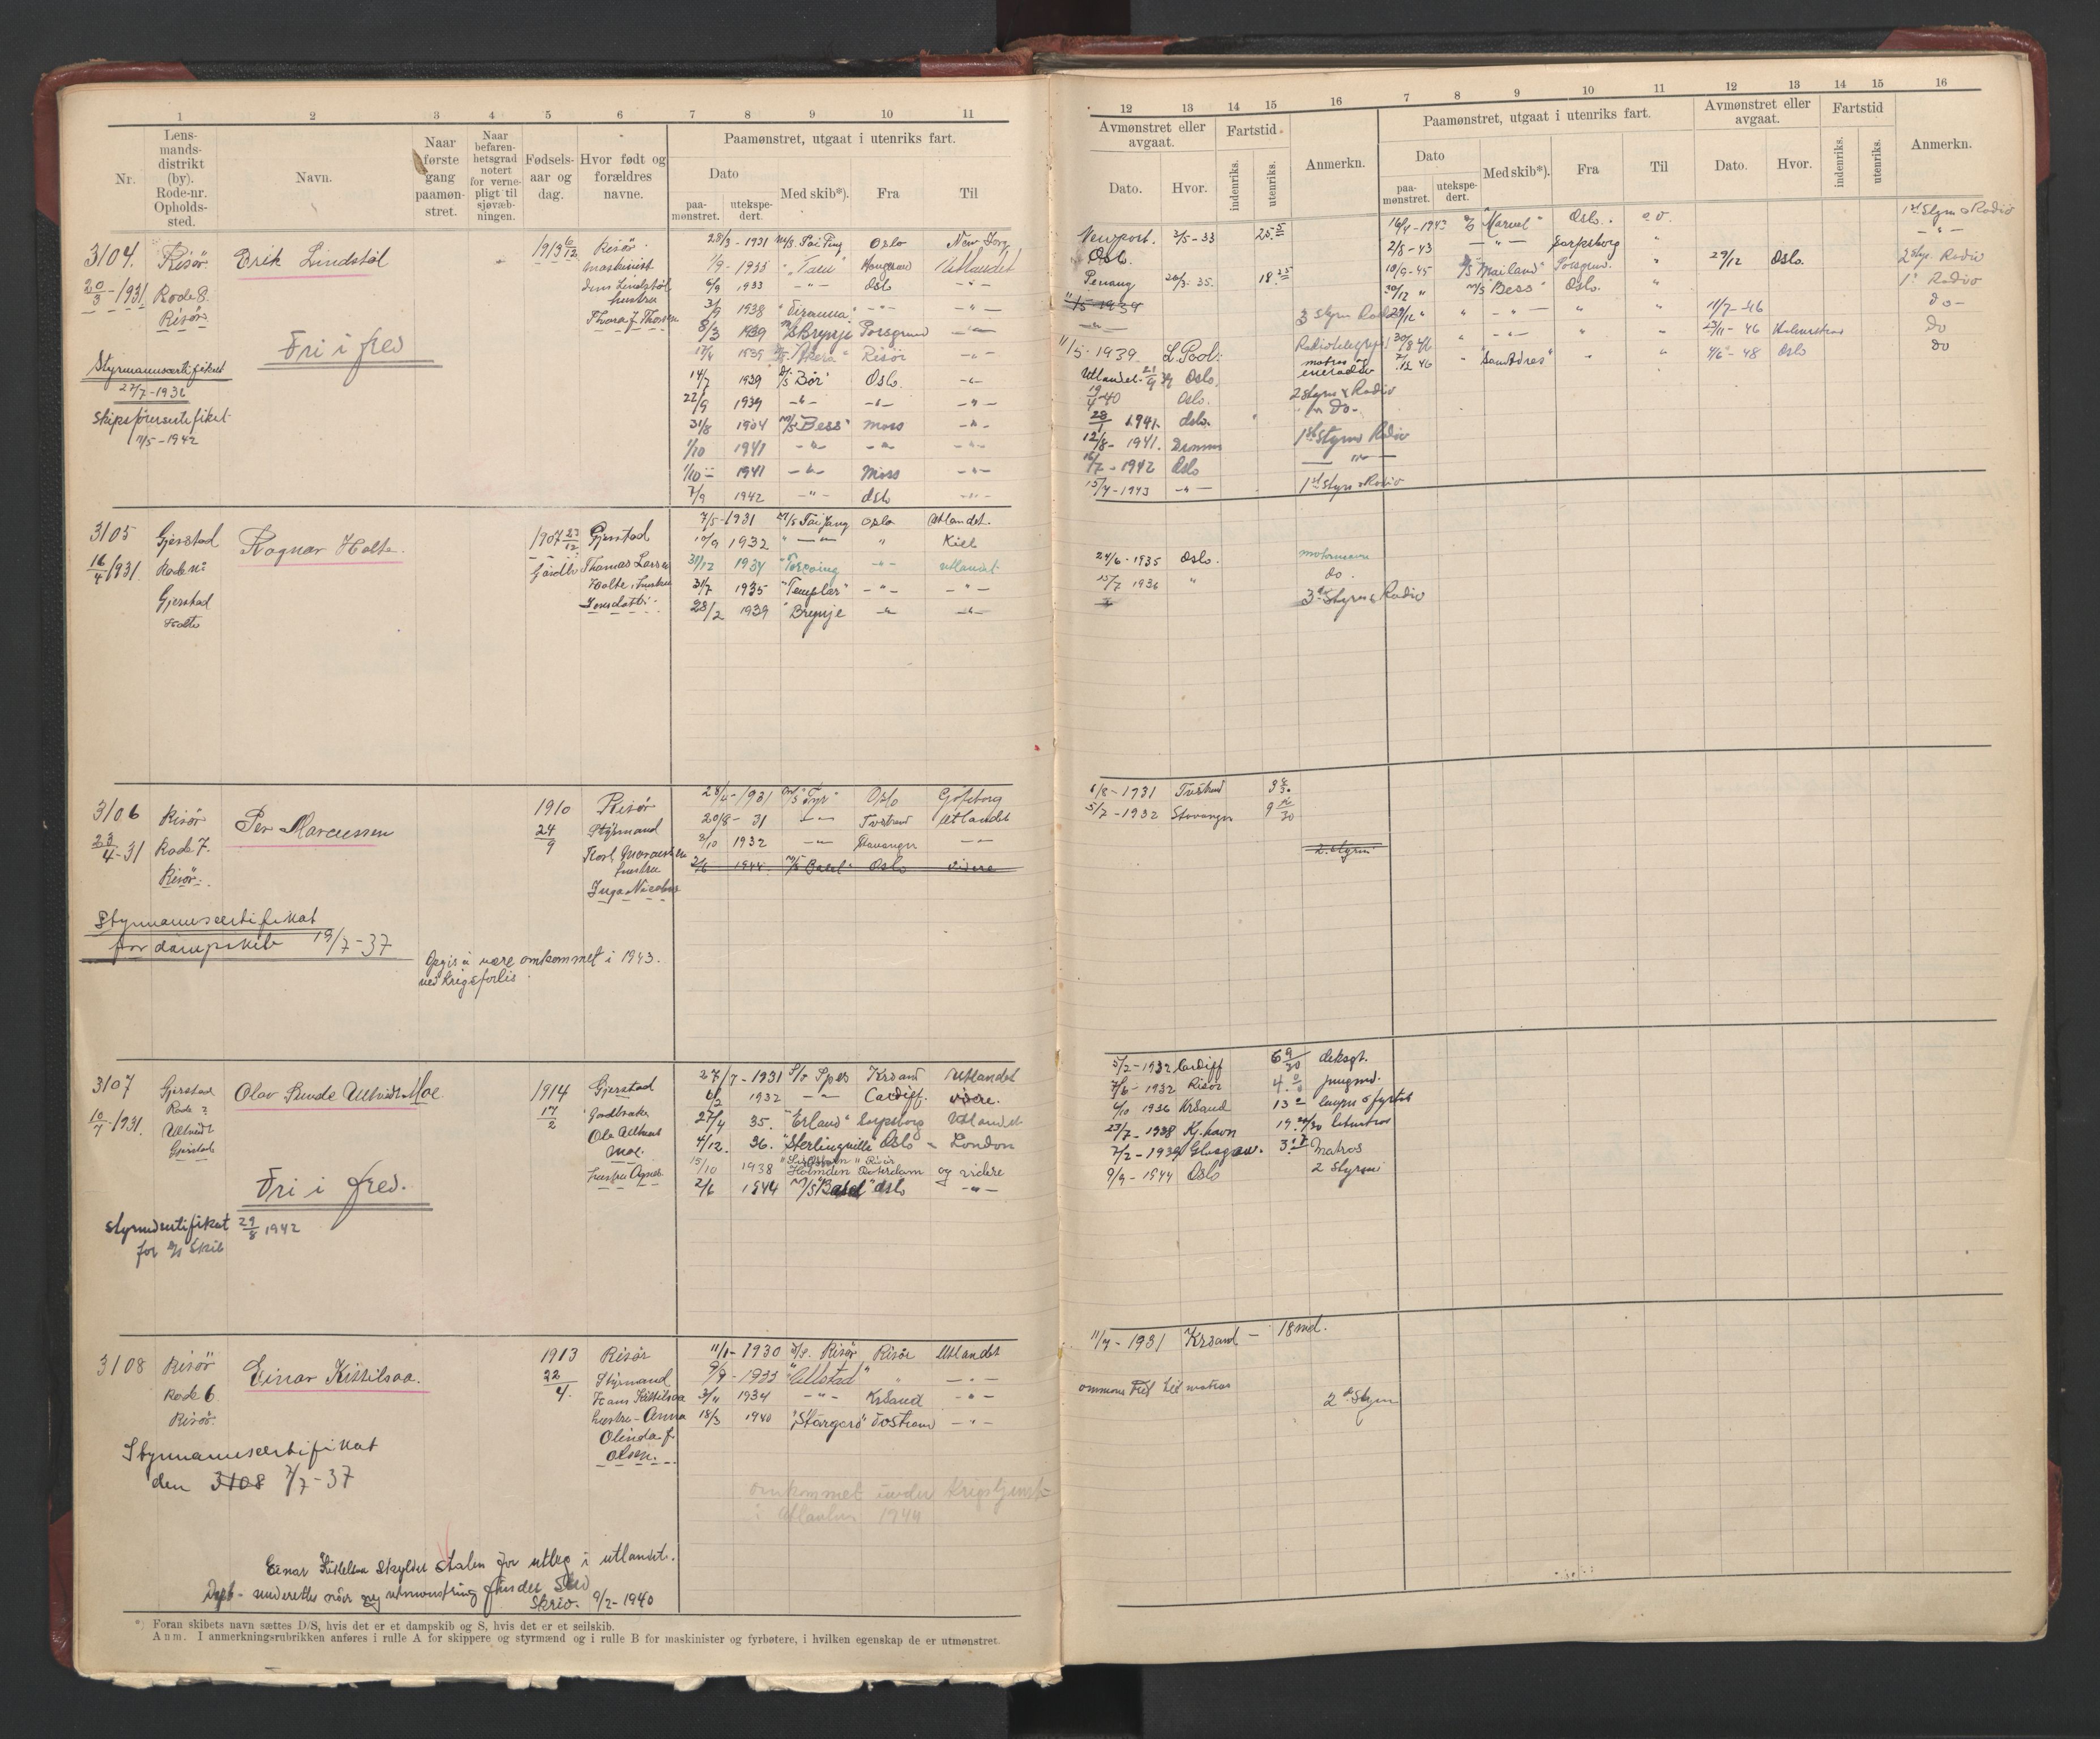 1 2 3 4 5 6 7 8 9 10 11
Nr.
Lens-
mands-
distrikt
(by).
Rode-nr.
Opholds-
sted.
Navn.
Naar
første
gang
paamøn-
stret.
Naar
befaren-
hetsgrad
notert
for verne-
pligt til
sjøvæb-
ningen.
Fødsels-
aar og
dag.
Hvor født og
forældres
navne.
Paamønstret, utgaat i utenriks fart.
Dato
paa-
mønstret.
utekspe-
dert.
Med skib*).
Fra
Til
3104. Risör Erik Lindstöl 1913 6/12 Risör
20/3-1931 Rode 8. maskinist
Risör Lindstöl
hustru
Thora f. Thorsen
Fri i fred
Styrmannscertifikat
27/7-1936
Skipsførersertifikat
11/5-1942
28/3-1931 M/S Tai Ping Oslo New York
1/9-1933 "Tau" Haugesund Utlandet
6/9 1933 -"- Oslo -"-
3/9 1938 -"- -"-
8/3 1939 M/S Brynje Porsgrund -"-
17/4 1939 Risör -"-
14/7 1939 D/S Bör Oslo. -"-
22/9 1939 -"- -"- -"-
31/8 1904 M/S "Bess" Moss -"-
1/10 1941 -"- -"- -"-
1/10 1941 -"- Moss -"-
7/9 1942 -"- Oslo -"-
3105 Gjerstad Ragnar Holte. 1907 23/12 Gjerstad
16/4 1931. Rode nr Thomas Larsen
Gjerstad Holte, hustru
Holte
7/5-1931 M/S Tai Yang Oslo Utlandet.
10/9 1932 -"- " Kiel
31/12 1934 -"- Utlandet
31/7 1935 "Templar" -"- -"-
28/2 1939 "Brynje -"- -"-
3106 Risör Per Marcussen 1910 Risör
23/4-31 Rode 7. 24/9 Styrmand
Risör. Karl Marcussen
hustru
Inga
Styrmannscertifikat
for dampskib 19/7-37
Opgis å være omkommet i 1943.
ved krigsforlis
28/4-1931 M/S "Tyr" Oslo Göteborg
20/8-31 -"- Tvstrand Utlandet
3/10 1932 -"- Stavanger -"-
2/6 1944 M/S Basel" Oslo videre
3107 Gjerstad Olav Runde Ulltveit-Moe. 1914 Gjerstad
10/7-1931. Rode ? 17/2 Jordbruker
Ulltveit Ole Ulltveit
Gjerstad Moe.
hustru Agnes
Fri i fred.
styrmdsertifikat 29/8 1942
for D/S Skib
27/7-1931 S/S Spes Krsand Utlandet
6/2 1932 -"- Cardiff. videre.
27/4 35. "Erland" Sarpsborg Utlandet
4/12. 36. "Sterlingville" Oslo - London
15/10 1938 Holmden Rotterdam og videre
2/6 1944 M/S "Basel" Oslo -"-
3108 Risör Einar Kittilsaa. 1913 Risör
Rode 6. 22/4. Styrmand
Risör. Hans Kittilsaa
hustru - Anna
Olinda f.
Olsen.
Styrmannscertifikat
den 3108 7/7-37
11/1-1930 D/S. Risör Risör Utlandet
9/9-1933 "Ullstad" " -"-
3/4 1934 -"- Krsand -"-
18/3 1940 "Stargard" Tvstrand -"-
omkommet under krigstjeneste
i Atlanten 1944
Einar Kittelsaa skylder staten for utleg i utlandet.
Dept. underettes når ny utmønstring finder sted
Skriv. 9/2-1940
*) Foran skibets navn sættes D/S, hvis det er et dampskib og S, hvis det er et seilskib.
Anm. I anmerkningsrubrikken anføres i rulle A for skippere og styrmænd og i rulle B for maskinister og fyrbøtere, i hvilken egenskap de er utmønstret.
12 13 14 15 16 7 8 9 10 11 12 13 14 15 16
Avmønstret eller
avgaat.
Fartstid.
Dato. Hvor.
indenriks. utenriks.
Anmerkn.
Paamønstret, utgaat i utenriks fart.
Dato
paa-
mønstret.
utekspe-
dert.
Med skib*).
Fra
Til
Avmønstret eller
avgaat.
Dato. Hvor.
Fartstid
indenriks. utenriks.
Anmerkn.
Newport. 2/5-33 25
Oslo.
Penang 20/3-35. 18
11/5-1939
11/5-1939. L.Pool.
Utlandet. Oslo.
19/4-40 Oslo.
28/1 1941. Oslo.
12/8-1941. Drammen
16/7-1942 Oslo
15/4-1943 -"-
3 Styrm Radio
Radiotelegrafist
matros og
eneradio
2 Styrm & Radio
do-
1st Styrm Radio
-"-
1st Styrm & Radio
16/4-1943 "Marvel" Oslo. o.v. 1st Styrm o Radio
2/8-43 -"- Sarpsborg " -"-
10/9-45 "Mailand" Porsgrund. " 29/12 Oslo. 2 Styr. Radio
30/12 " M/S "Bess" Oslo. " 1st Radio
29/12 " " -"- " " 11/7-46 do-
30/8 46 " -"- " " 23/11-46 do
2/12 46 " "San Andres" " " 4/6-48 Oslo do
24/6-1935 Oslo. motormann
15/7 1936 " do.
3die Styrm & Radio
1/8-1931 Tvstrand 3
5/7-1932 Stavanger 9
2. Styrm
5/2-1932 Cardiff 6 9/30 deksgt.
7/6-1932 Risör 4. jungmd.
4/10 1936 Krsand 13 lemper o fyrböt
23/7-1938 Kj.havn 19. letmatros
7/2-1939 Glasgow. 3. Matros
9/9-1944 Oslo 2 Styrm
11/4-1931 Krsand - 18 md.
2den Styrm